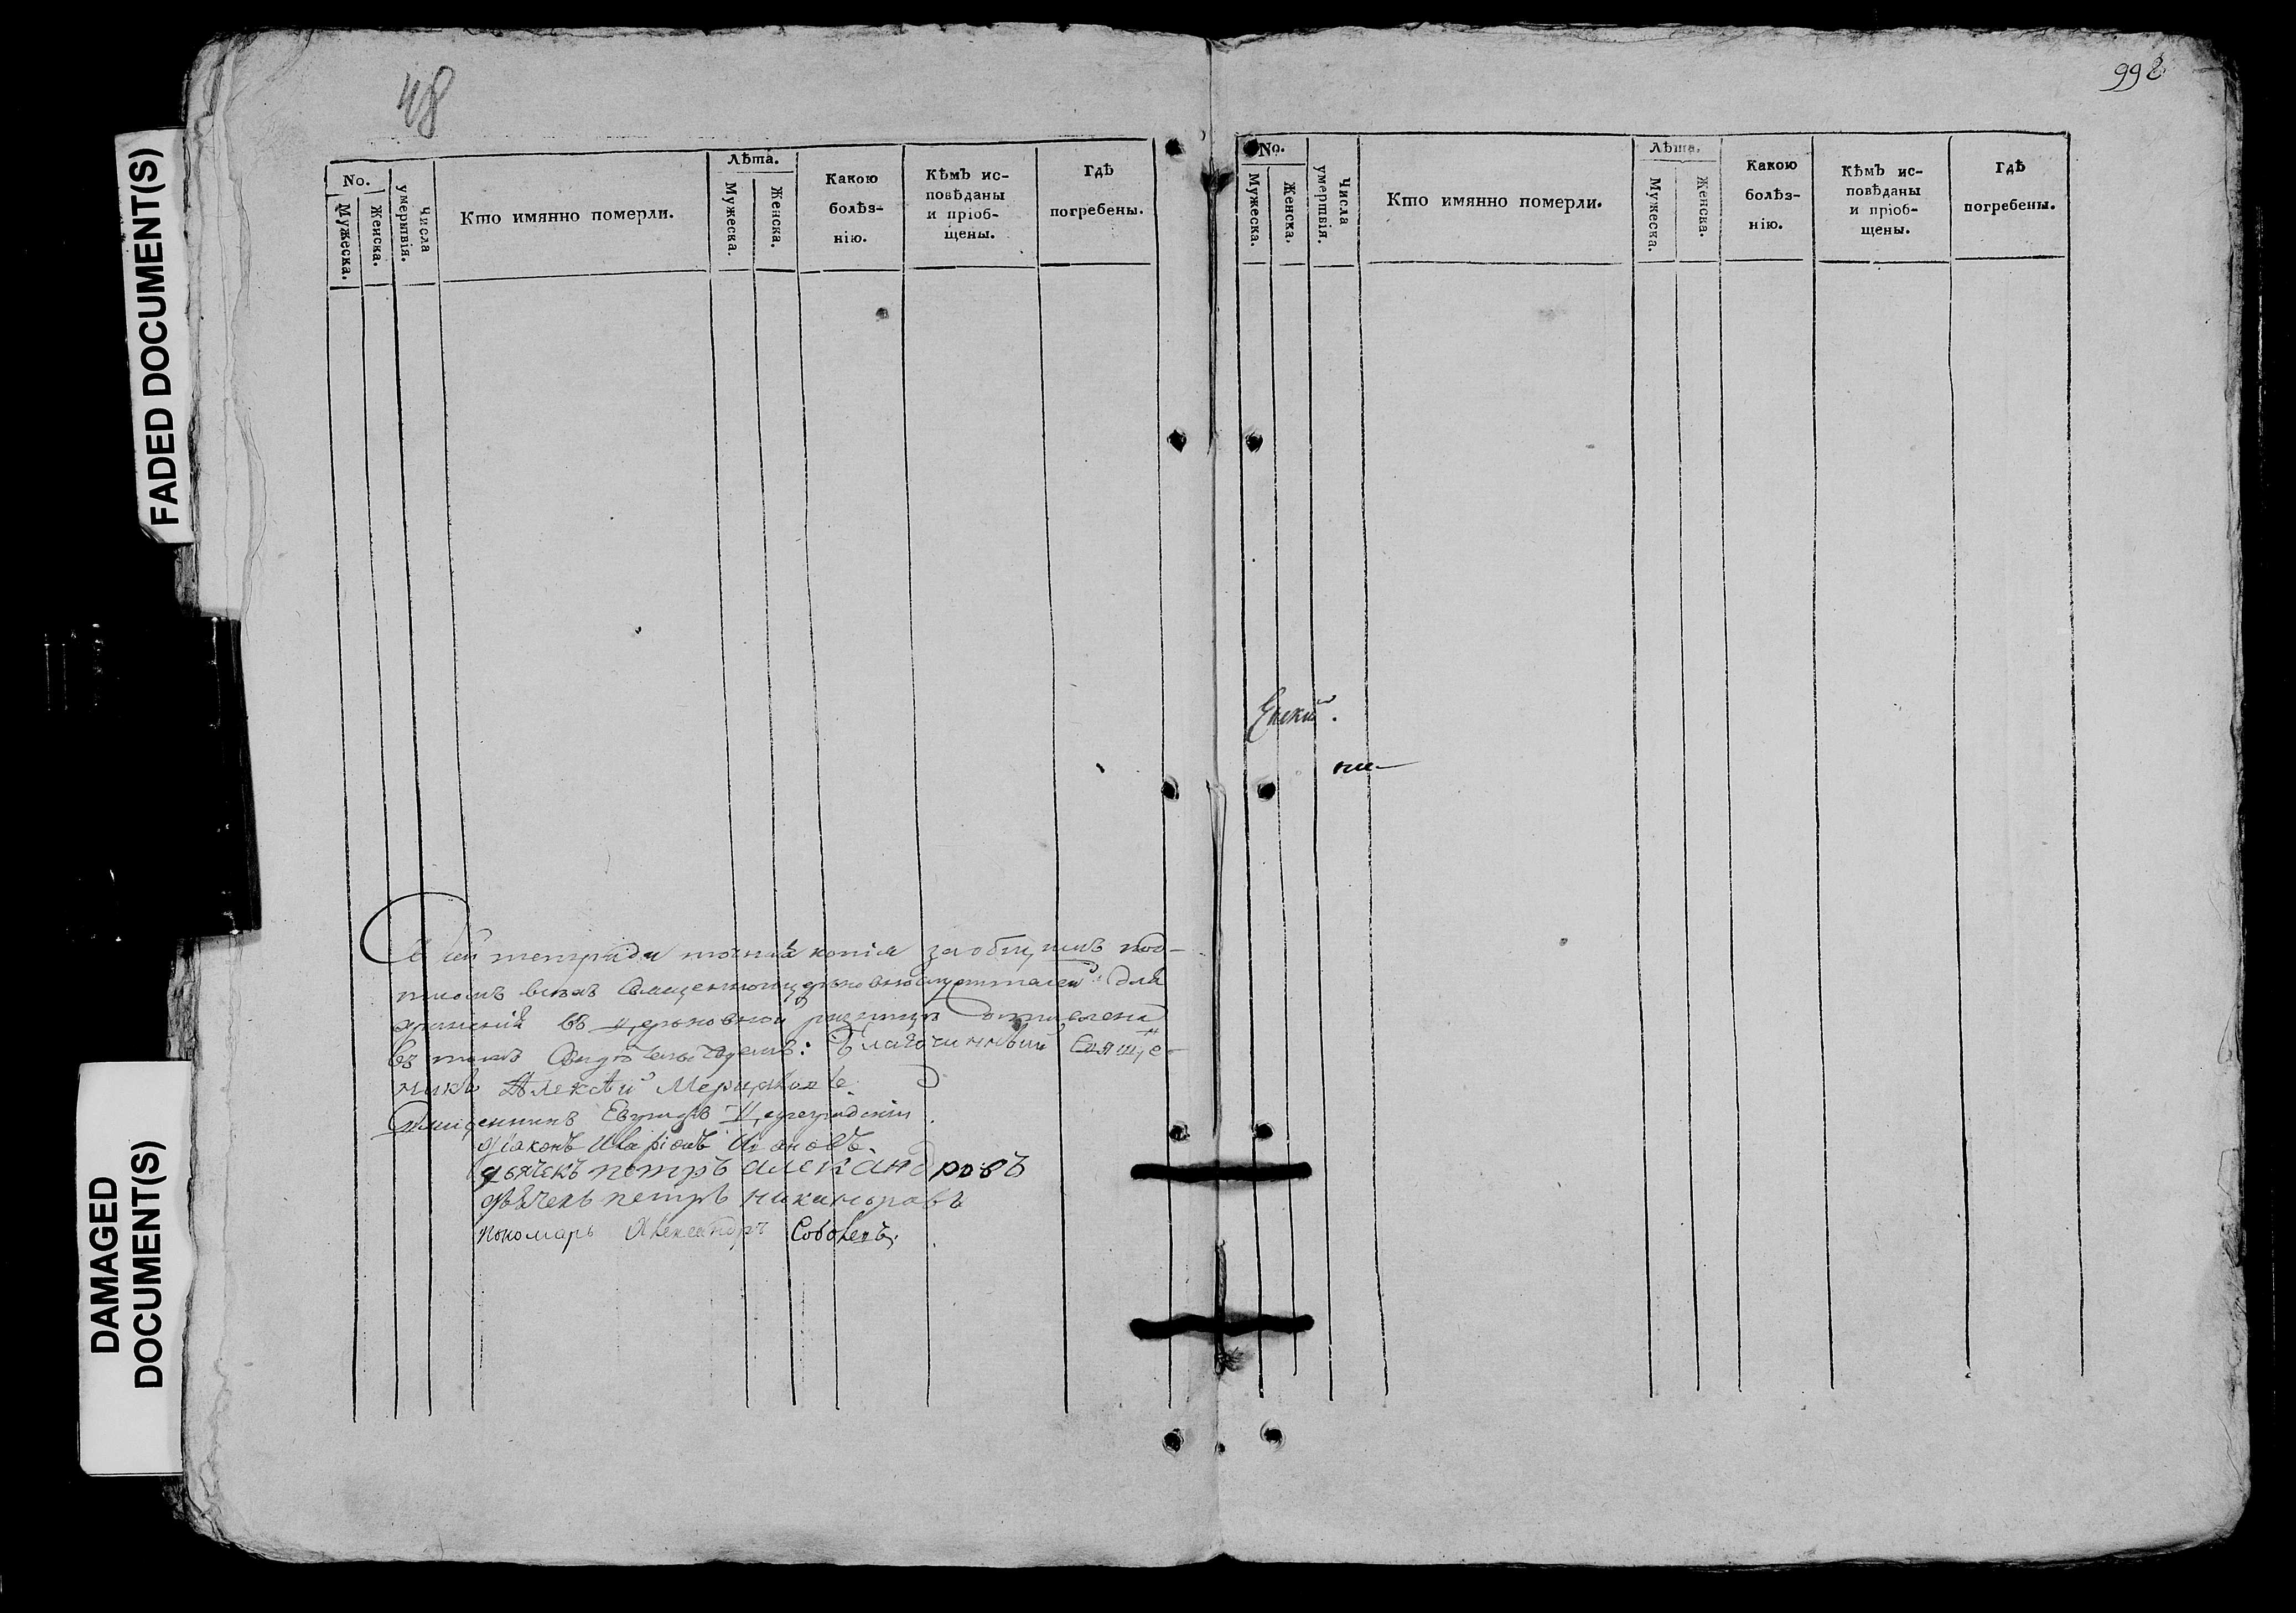 FADED DOCUMENT(S)
DAMAGED
DOCUMENT(S)
48
No.
Мужеска.
Женска.
Числа
умертвія.
Кто имянно померли.
Лѣта.
Мужеска.
Женска.
Какою
болѣз-
нію.
Кѣмъ ис-
повѣданы
и пріоб-
щены.
Гдѣ
погребены.
тетради точная копія за общимъ под-
для
въ церковной ризницѣ оставлена
въ томъ Благочинный Свяще-
никъ Алексѣй
Священникъ
Діаконъ Иларіонъ
дьячекъ петръ александровъ
дьячекъ петръ никаноровъ
пономарь Александръ Соболевъ.
992
No.
Мужеска.
Женска.
Числа
умертвія.
Кто имянно померли.
Лѣта.
Мужеска.
Женска.
Какою
болѣз-
нію.
Кѣмъ ис-
повѣданы
и пріоб-
щены.
Гдѣ
погребены.